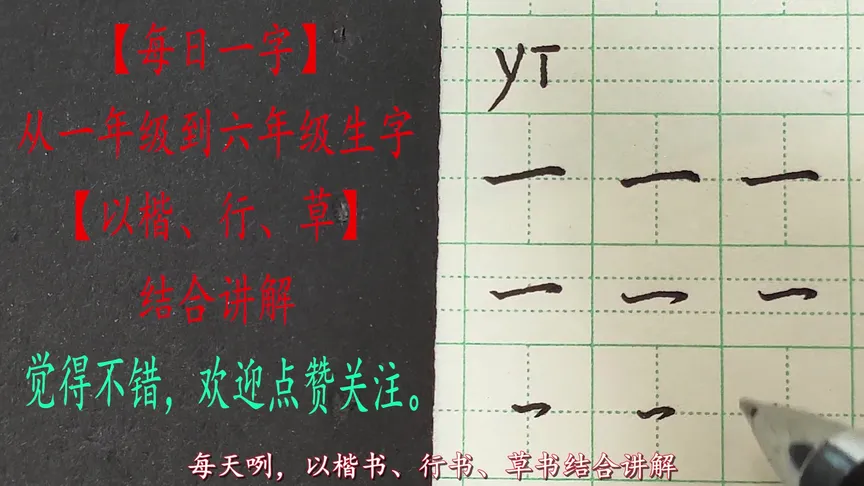 【每日一字】
从一年级到六年级生字
【以楷、行、草】
结合讲解
觉得不错，欢迎点赞关注。
yī
一 一 一
一 一 一
一 一
每天咧，以楷书、行书、草书结合讲解